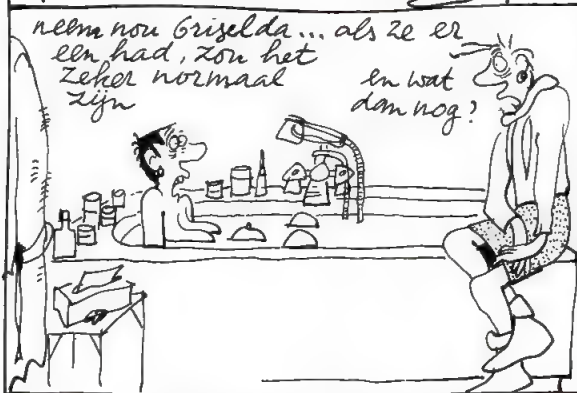 neem nou Griselda... als ze er
een had, zou het
zeker normaal
zijn
en wat
dan nog?